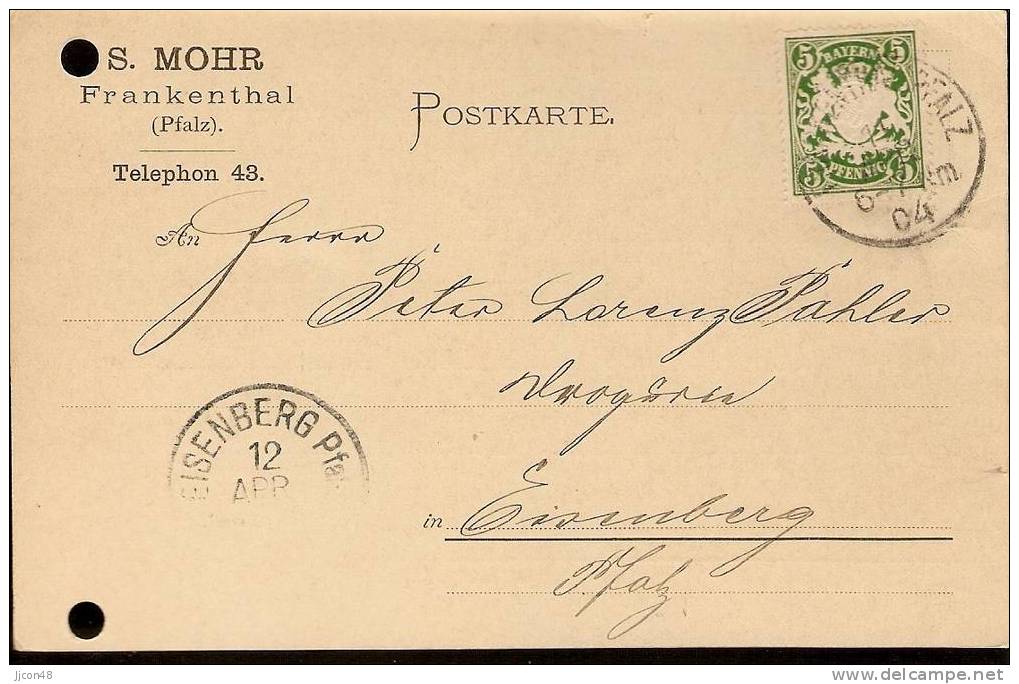 S. MOHR
Frankenthal
(Pfalz).
Telephon 43.
POSTKARTE.
5 BAYERN 5
5 PFENNIG 5
PFALZ
04
An Herrn
Peter Lorenz Pähler
Drogerie
in Eisenberg
Pfalz
EISENBERG Pfal
12
APR
jjcon48
www.delcampe.net